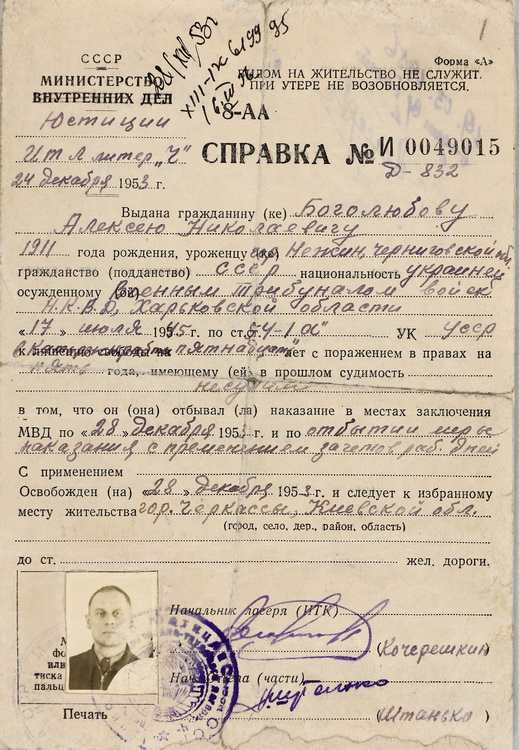 1
СССР
МИНИСТЕРСТВО
ВНУТРЕННИХ ДЕЛ
Юстиции
ИТЛ литер „Ч"
24 декабря 1953 г.
XIII-IX 619995
Форма «А»
ВИДОМ НА ЖИТЕЛЬСТВО НЕ СЛУЖИТ.
ПРИ УТЕРЕ НЕ ВОЗОБНОВЛЯЕТСЯ.
8-АА
СПРАВКА № И 0049015
Д-832
Выдана гражданину (ке) Боголюбову
Алексею Николаевичу
1911 года рождения, уроженцу гор. Нежин, Черниговской обл.
гражданство (подданство) СССР национальность украинец
осужденному (ой) Военным трибуналом войск
НКВД, Харьковской области
«17» июля 1945 г. по ст. 54-1а" УК УССР
к пятнадцать" лет с поражением в правах на
"пять года, имеющему (ей) в прошлом судимость
несудим
в том, что он (она) отбывал (ла) наказание в местах заключения
МВД по «28» декабря 1953 г. и по отбытии меры
наказания с применением зачетов раб. дней
С применением
Освобожден (на) «28» декабря 1953 г. и следует к избранному
месту жительства гор. Черкассы, Киевской обл.
(город, село, дер., район, область)
до ст. жел. дороги.
Начальник лагеря (ИТК)
(Кочерешкин)
(части)
Печать
(Штанько)